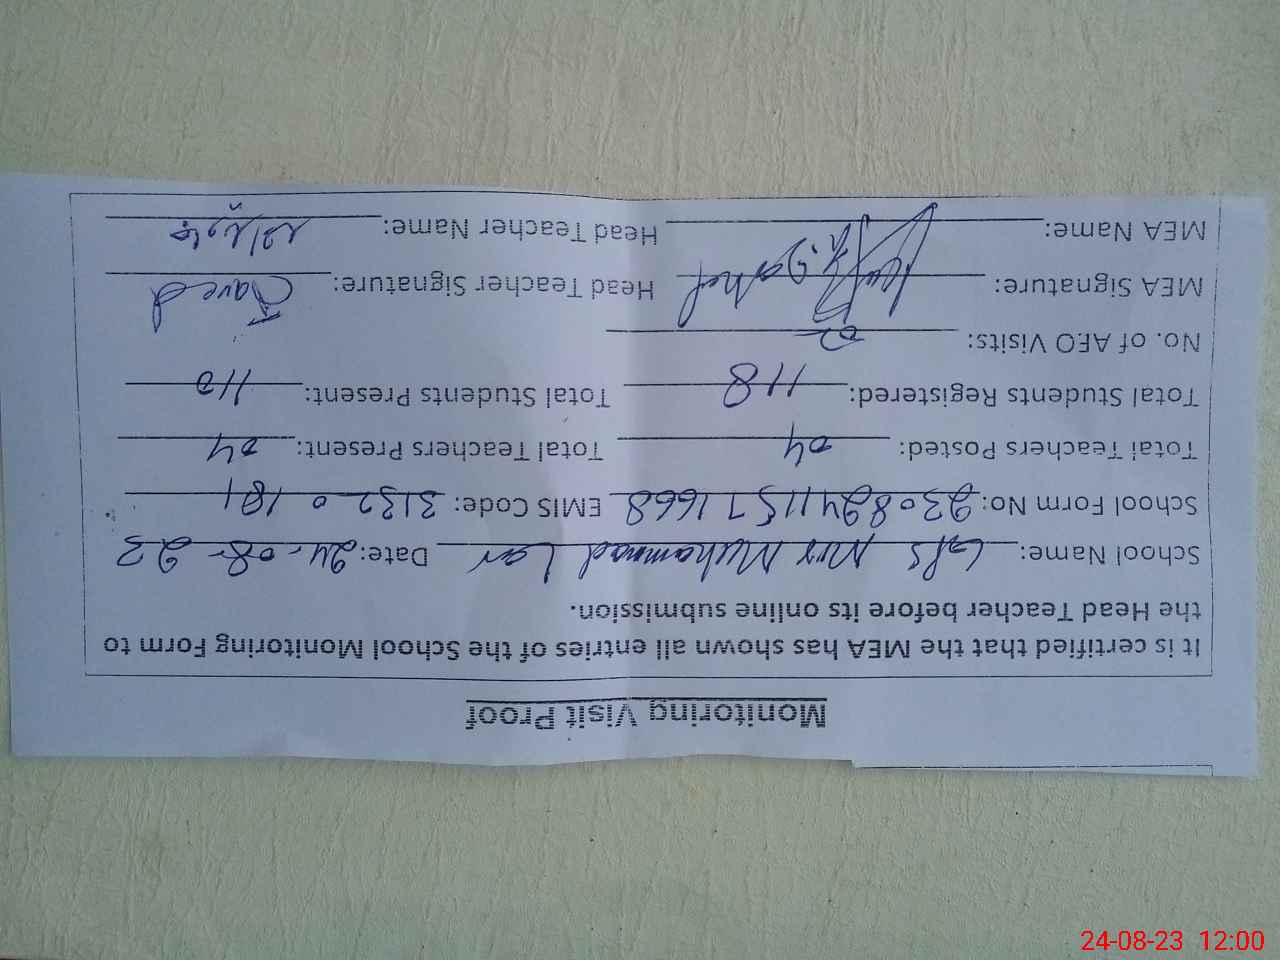 Monitoring Visit Proof
It is certified that the MEA has shown all entries of the School Monitoring Form to
the Head Teacher before its online submission.
School Name: GPS Nur Muhammad Lar Date: 24-08-23
School Form No: 2308241157 1668 EMIS Code: 3132 0 181
Total Teachers Posted: 04 Total Teachers Present: 04
Total Students Registered: 118 Total Students Present: 110
No. of AEO Visits:
MEA Signature: Head Teacher Signature: Javed
MEA Name: Head Teacher Name:
24-08-23 12:00